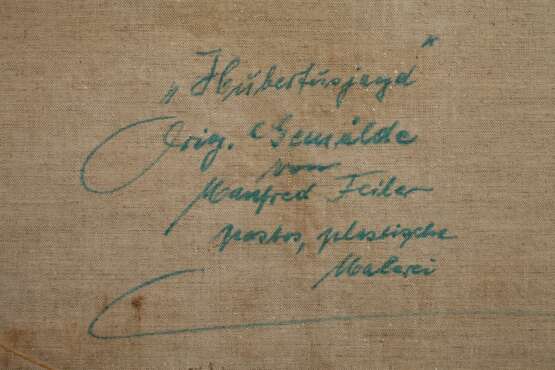 „Hubertusjagd“
Orig. Gemälde
von
Manfred Feiler
pastos, plastische
Malerei